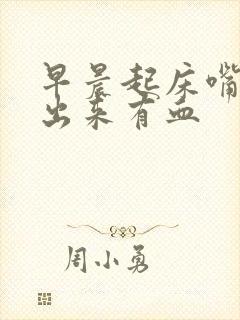 早晨起床嘴
出来有血
周小勇